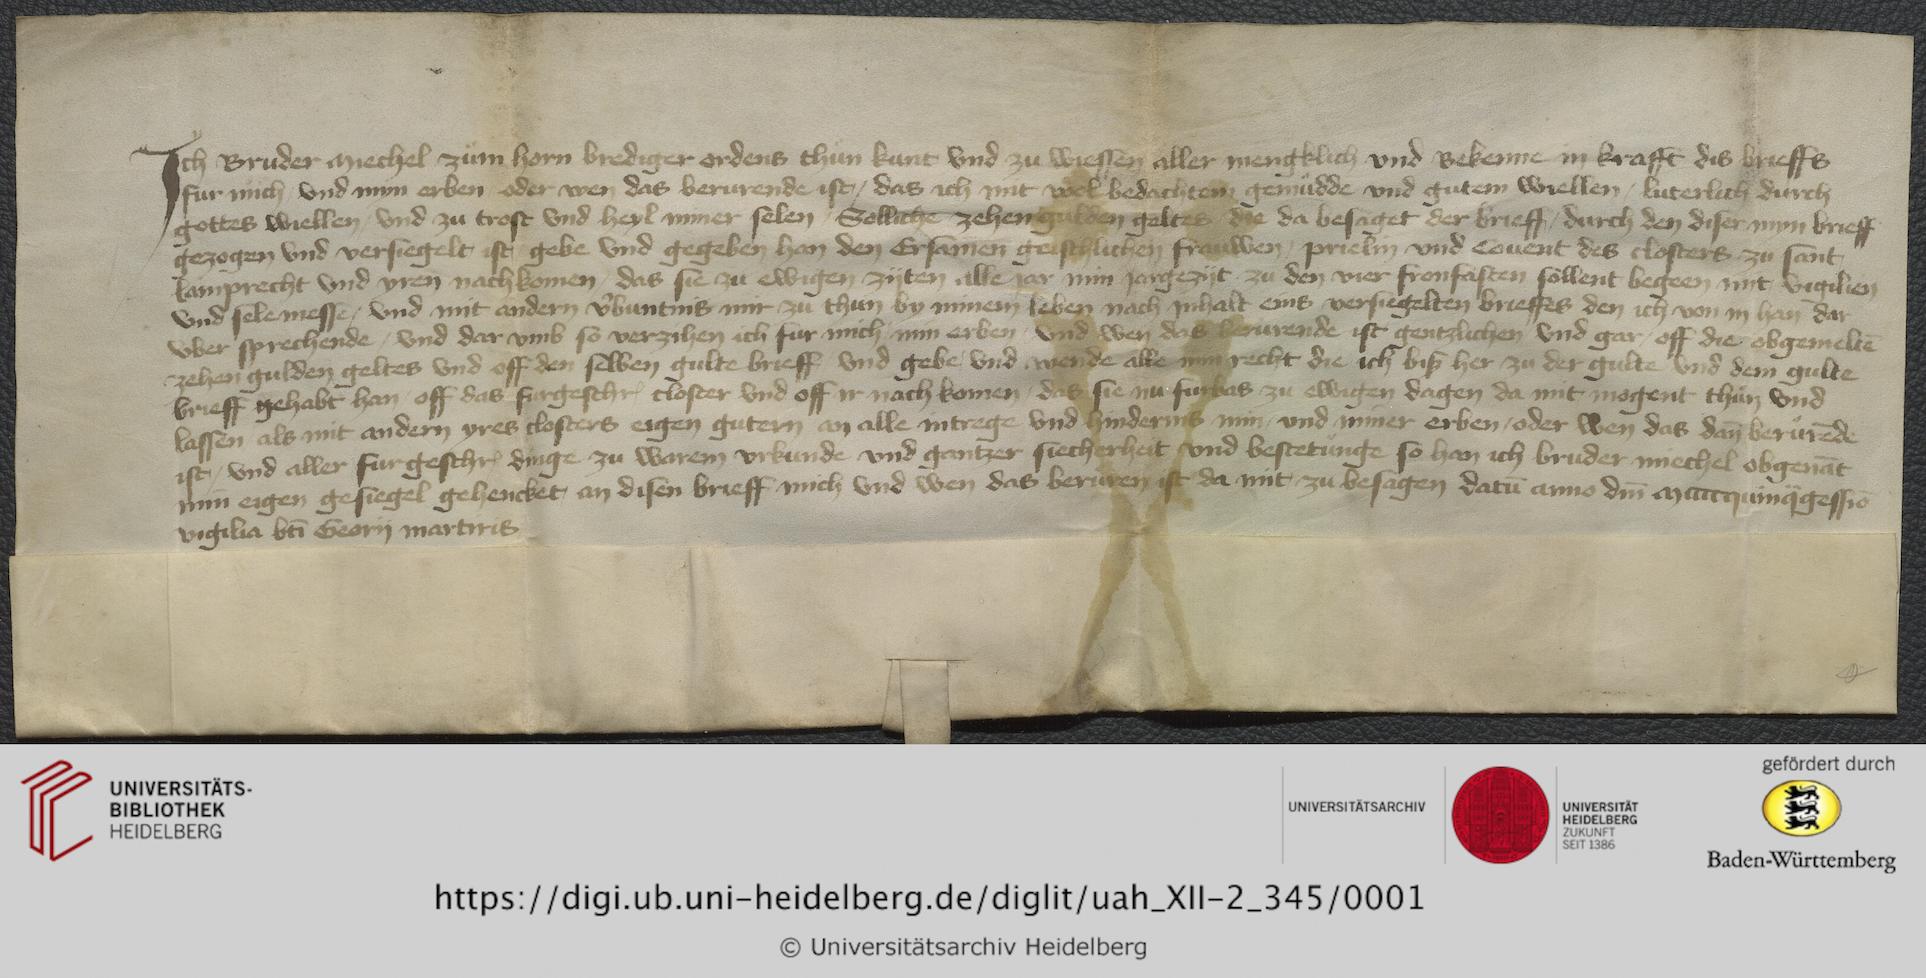 Ich Bruder Miechel zům horn brediger ordens thůn kunt vnd zu wiessen aller mengklich vnd Bekenne in krafft dis brieffs
fur mich vnd mym erben oder wen das berurende ist / das ich mit wol bedachtem gemůdde vnd gutem wiellen / luterlich durch
gottes wiellen / vnd zu trost vnd heyl miner selen / Solliche zehen gulden geltes die da besaget der brieff / durch den diser mym brieff
gezogen vnd versiegelt ist gebe vnd gegeben han den Ersamen geischlichen frauwen / prielin vnd Couent des closters zu sant
lamprecht vnd yren nachkomen / das sie zu ewigen zijten alle jar min jargezijt zu den vier fronfasten sollent begeen mit vigilien
vnd selemesse / vnd mit andern v̓buntnis mir zu thun by minem leben nach Inhalt eins versiegelten brieffes den ich von in han dar
vber sprechende / vnd dar vmb so verzihen ich fur mich min erben vnd wen das berurende ist gentzlichen vnd gar / off die obgemeltē
zehen gulden geltes vnd off den selben gulte brieff vnd gebe vnd wende alle min recht die ich biß her zu der gulte vnd dem gulte
brieff gehabt han off das furgeschr̓ closter vnd off ir nach komen / das sie nu furbas zu ewigen dagen da mit mogent thůn vnd
lassen als mit andern yres closters eigen gutern an alle intrege vnd hindernis min vnd miner erben / oder wen das dan̄ berůrēde
ist / vnd aller furgeschr̓ dinge zu warem vrkunde vnd gantzer siecherheit vnd bestetůnge so han ich bruder miechel obgenāt
min eigen gesiegel gehencket an disen brieff mich vnd wen das beruren ist da mit zu besagen datū anno dm̄ Mccccquinq̄gessīo
vigilia btī Georij martiris
UNIVERSITÄTS-
BIBLIOTHEK
HEIDELBERG
UNIVERSITÄTSARCHIV
UNIVERSITÄT
HEIDELBERG
ZUKUNFT
SEIT 1386
gefördert durch
Baden-Württemberg
https://digi.ub.uni-heidelberg.de/diglit/uah_XII-2_345/0001
© Universitätsarchiv Heidelberg